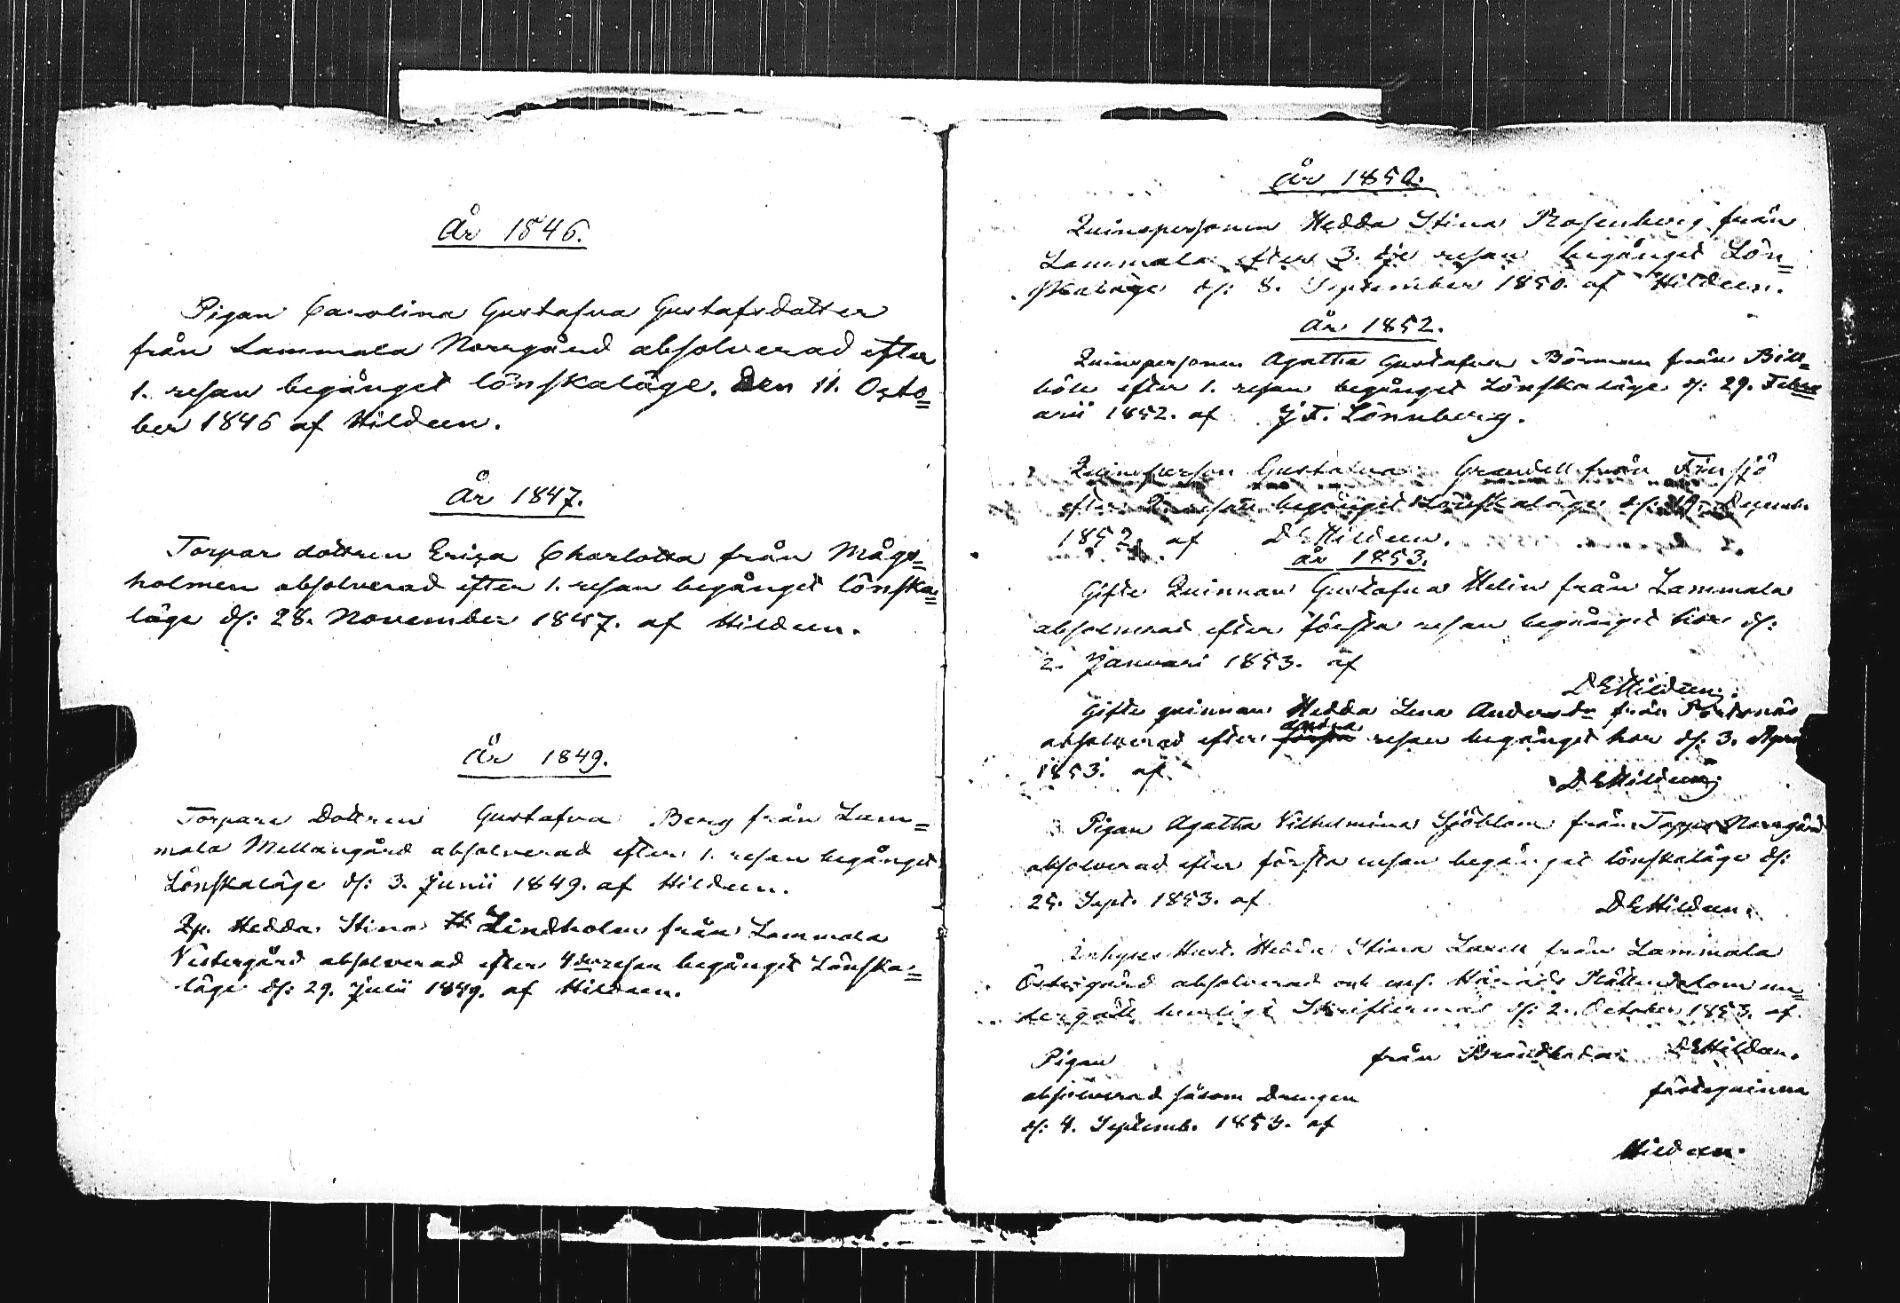 År 1846.
Pigan Carolina Gustafva Gustafsdotter
från Lammala Norrgård absolverad efter
1. resan begånget lönskaläge. Den 11. Octo=
ber 1846 af Hildeen.
År 1847.
Torpar dottren Erica Charlotta från Mågs=
holmen absolverad efter 1. resan begånget lönska=
läge d: 28. November 1847. af Hildeen.
År 1849.
Torpare Dottren Gustafva Berg från Lam=
mala Mellangård absolverad efter 1. resan begånget
Lönskaläge d: 3. Junii 1849. af Hildeen.
Qp. Hedda Stina Lindholm från Lammala
Vestergård absolverad efter 4de resan begånget Lönska=
läge d: 29. Julii 1849. af Hildeen.
År 1850.
Quinspersonen Hedda Stina Rosenberg från
Lammala efter 3. dje resan begånget Lön=
skaläge d: 8. September 1850. af Hildeen.
år 1852.
Quinspersonen Agatha Gustafva Börman från Böle=
böle efter 1. resan begånget Lönskaläge d: 29. Febru
arii 1852. af G. F. Lönnberg.
Quinsperson Gustafva Grandell från Finsjö
efter resan begånget Lönskaläge d: 19. December
1852. af D E Hildeen.
år 1853.
Gifte Quinnan Gustafva Helin från Lammala
absolverad efter första resan begånget hor d:
2. Januari 1853. af
D E Hildeen.
Gifte quinnan Hedda Lena Andersdr från
absolverad efter första andra resan begånget hor d: 3. April
1853. af
D E Hildeen
Pigan Agatha Vilhelmina Sjöblom från Norrgård
absolverad efter första resan begånget lönskaläge d:
25. Sept. 1853. af
D E Hildeen.
Hust. Hedda Stina Laxell från Lammala
Östergård absolverad och enl. Härads Rättens dom un=
dergått hemligt Skriftermål d: 2. October 1853. af
D E Hildeen.
Pigan från Brändboda
absolverad såsom Drengen fästeqvinna
d: 4. Septemb. 1853. af
Hildeen.